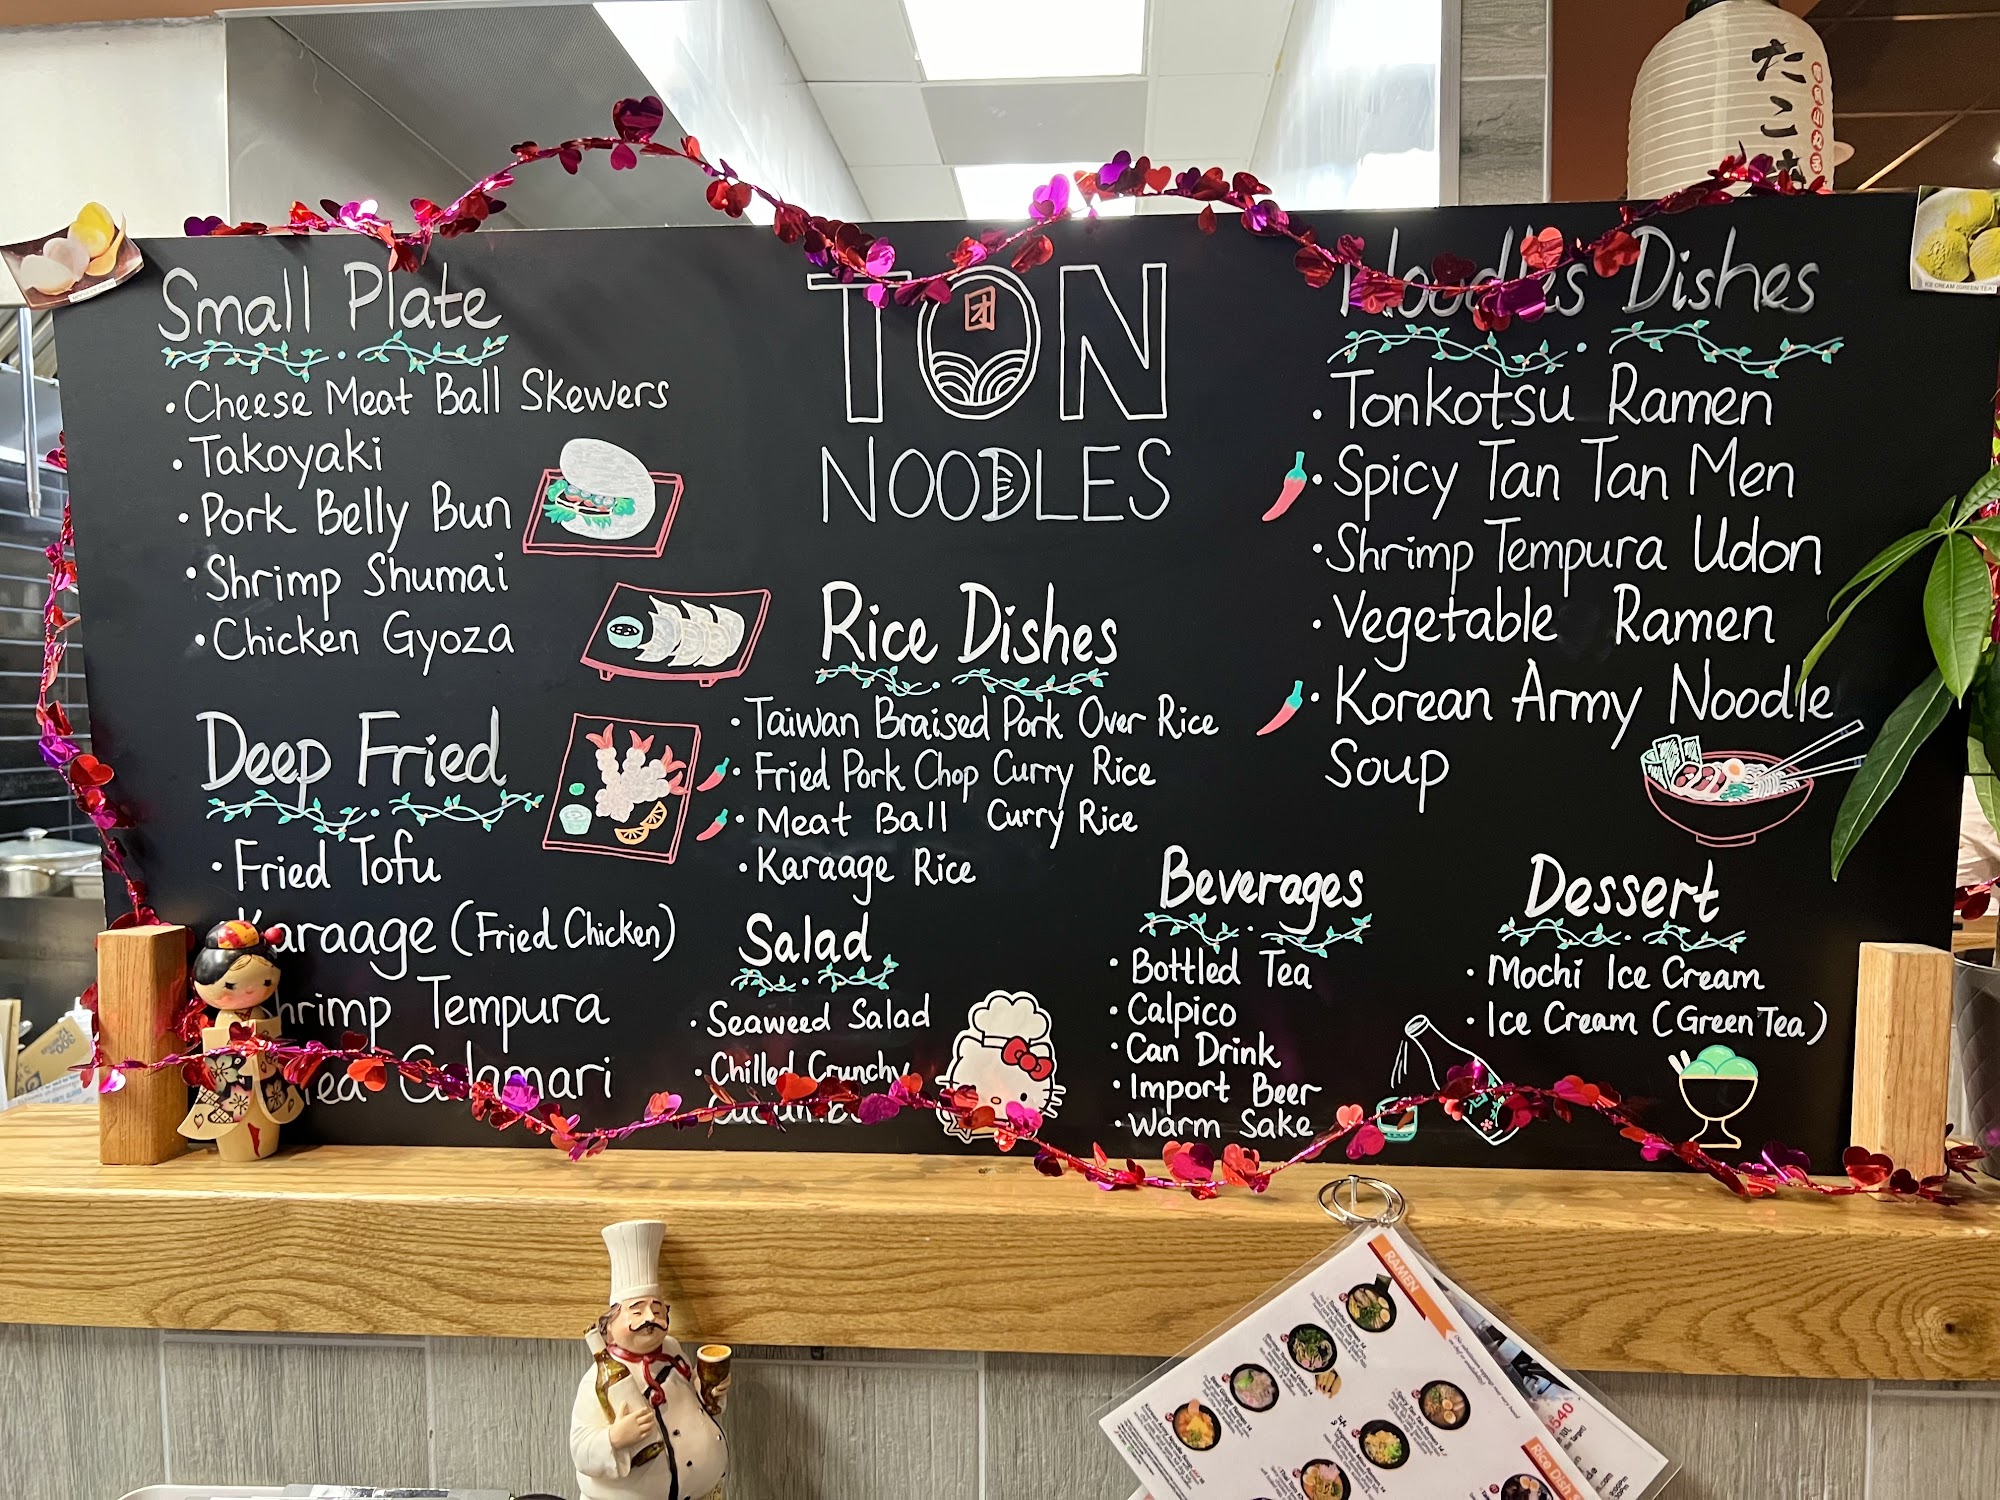 Small Plate
• Cheese Meat Ball Skewers
• Takoyaki
• Pork Belly Bun
• Shrimp Shumai
• Chicken Gyoza
Deep Fried
• Fried Tofu
Karaage (Fried Chicken)
Shrimp Tempura
Calamari
団
TON
NOODLES
Rice Dishes
• Taiwan Braised Pork Over Rice
• Fried Pork Chop Curry Rice
• Meat Ball Curry Rice
• Karaage Rice
Salad
• Seaweed Salad
• Chilled Crunchy
Noodles Dishes
• Tonkotsu Ramen
• Spicy Tan Tan Men
• Shrimp Tempura Udon
• Vegetable Ramen
• Korean Army Noodle
Soup
Beverages
• Bottled Tea
• Calpico
• Can Drink
• Import Beer
• Warm Sake
Dessert
• Mochi Ice Cream
• Ice Cream (Green Tea)
たこ
ICE CREAM (GREEN TEA)
RAMEN
Rice Dish